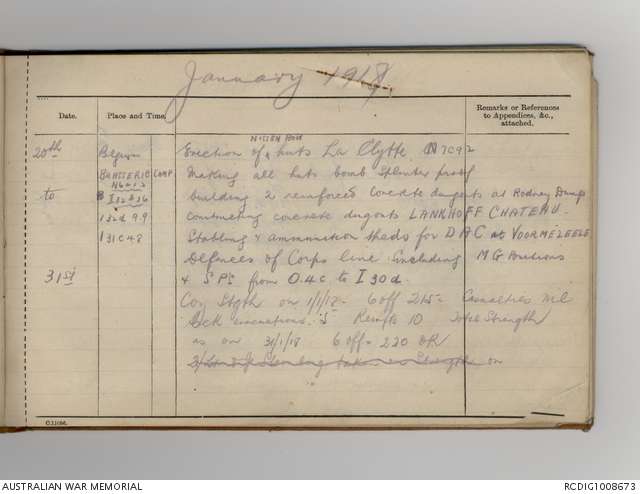 January 1918
Date.
Place and Time.
Remarks or References to Appendices, &c., attached.
20th
to
31st
Belgium
BRASSERIE CAMP
N6a12
I32d36
I32d99
I31c48
NISSEN BOW
Erection of huts La Clytte N7C92
Making all huts bomb splinter proof
building 2 reinforced Concrete dugouts at Rodney Dump
Constructing concrete dugouts LANKHOFF CHATEAU.
Stabling & ammunition sheds for DAC at VOORMEZEELE
Defences of Corps line including MG Positions
& S.P's from O.4c to I 30d.
Coy Stgth on 1/1/18 - 6 off 215 - Casualties nil
Sick evacuations 5 Reinfts 10 Total Strength
as on 31/1/18 6 off - 220 OR
taken on Strength on
AUSTRALIAN WAR MEMORIAL
RCDIG1008673